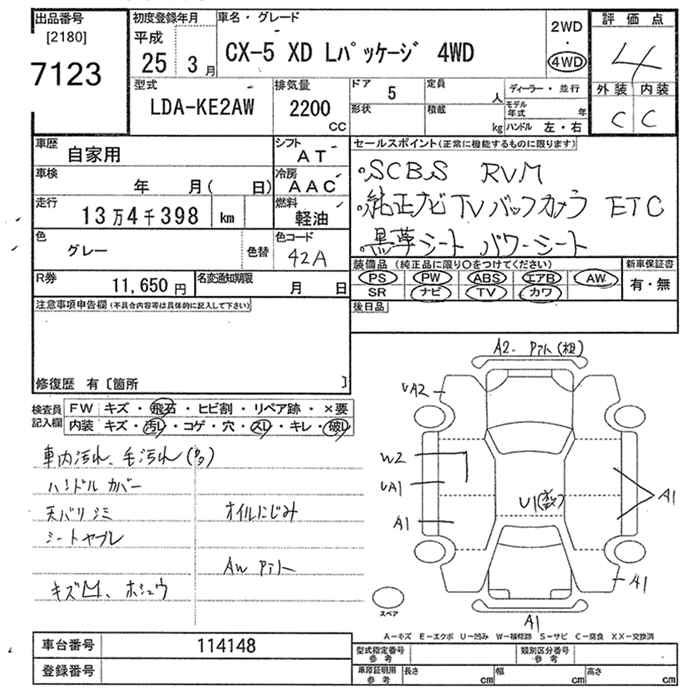 出品番号 初度登録年月 車名・グレード 2WD 評価点
[2180] 平成 ・ 4
7123 25 3月 CX-5 XD Lパッケージ 4WD 4WD
型式 排気量 ドア 5 定員 人 ディーラー・並行 外装 内装
LDA-KE2AW 2200 CC 形状 積載 kg モデル年式 年 C C
ハンドル 左・右
車歴 自家用 シフト AT セールスポイント(正常に機能するものに限ります)
車検 年 月( 日) 冷房 AAC ・SCBS RVM
走行 13万4千398 km 燃料 軽油 ・純正ナビTVバックカメラ ETC
色 グレー 色替 色コード 42A ・黒革シート パワーシート
R券 11,650円 名変通知期限 月 日 装備品(純正品に限り○をつけてください) 新車保証書
PS PW ABS エアB AW 有・無
SR ナビ TV カワ
注意事項申告欄(不具合内容等は具体的に記入して下さい) 後日品
修復歴 有〔箇所 〕
検査員記入欄 FW キズ・飛石・ヒビ割・リペア跡・×要
内装 キズ・汚レ・コゲ・穴・スレ・キレ・破レ
車内汚れ、毛汚れ(多)
ハンドルカバー
天バリシミ オイルにじみ
シートヤブレ
AW
キズ 凹、ホシュウ
A2.
UA2
W2
UA1 U1
A1 A1
A1
A1
スペア
A-キズ E-エクボ U-凹み W-補修跡 S-サビ C-腐食 XX-交換済
車台番号 114148 型式指定番号 参考 類別区分番号 参考
登録番号 車庫証明用 参考 長さ cm 幅 cm 高さ cm